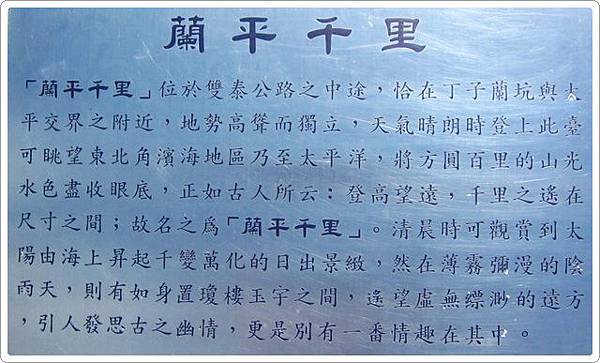 蘭平千里
「蘭平千里」位於雙泰公路之中途，恰在丁子蘭坑與太
平交界之附近，地勢高聳而獨立，天氣晴朗時登上此臺
可眺望東北角濱海地區乃至太平洋，將方圓百里的山光
水色盡收眼底，正如古人所云：登高望遠，千里之遙在
尺寸之間；故名之為「蘭平千里」。清晨時可觀賞到太
陽由海上昇起千變萬化的日出景緻，然在薄霧彌漫的陰
雨天，則有如身置瓊樓玉宇之間，遙望虛無縹渺的遠方
，引人發思古之幽情，更是別有一番情趣在其中。